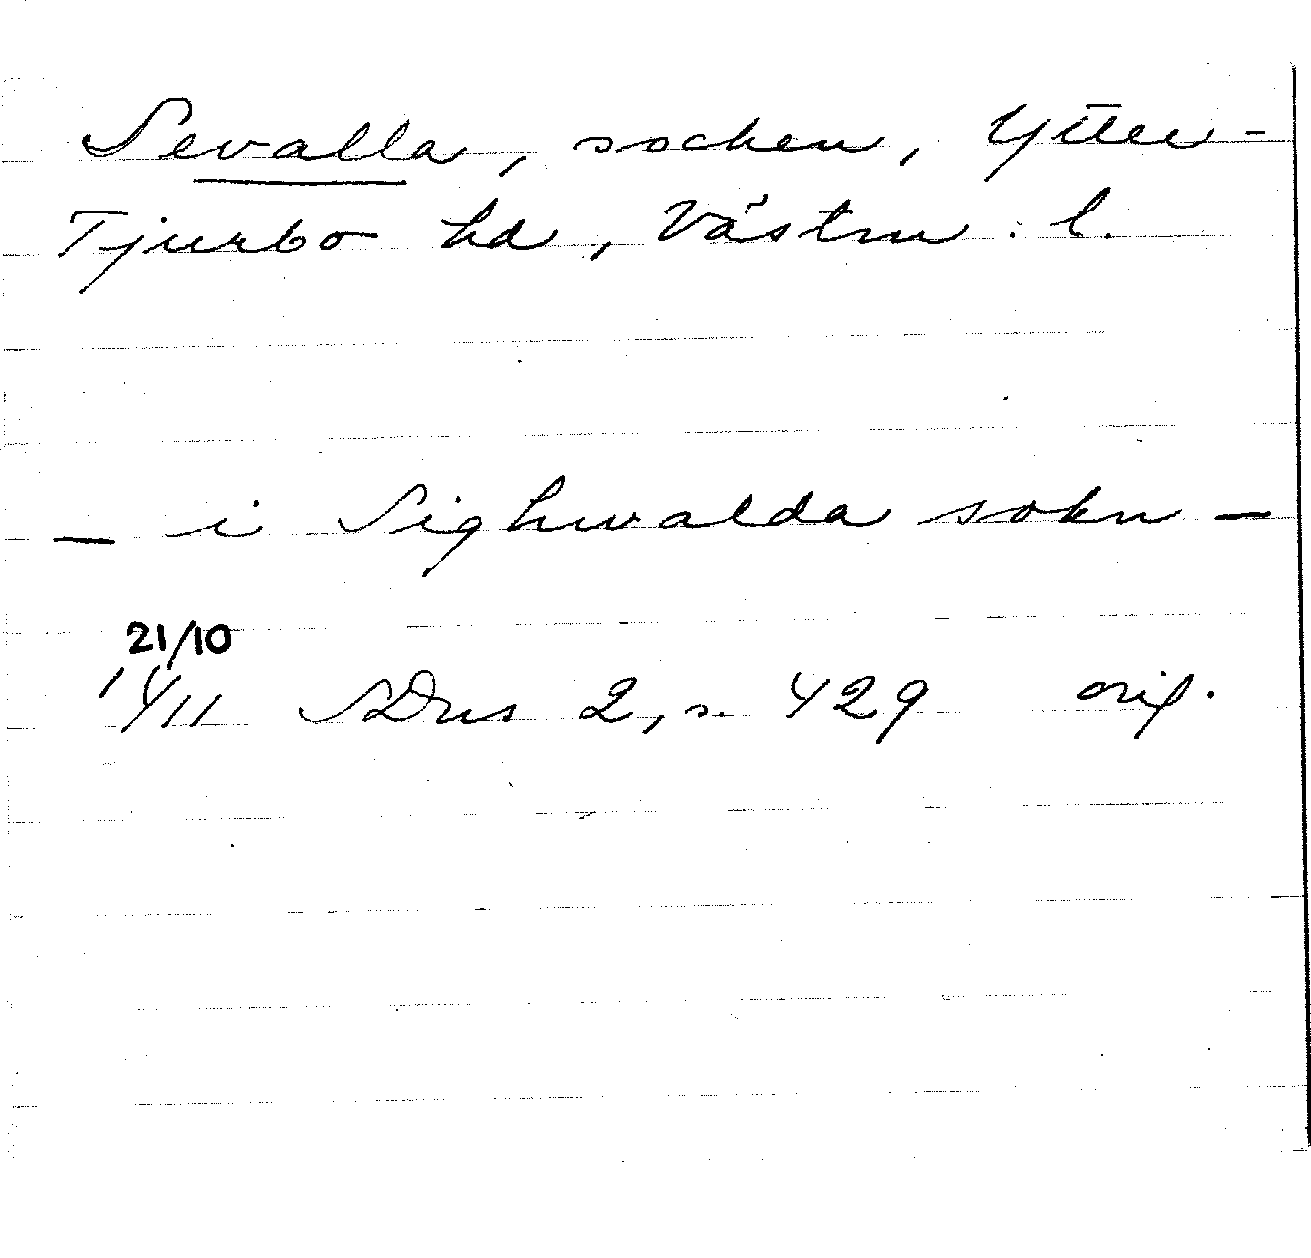 Sevalla, socken, Ytter-
Tjurbo hd, Västm. l.
— i Sighwalda sokn —
21/10
1411 SDns 2, s. 429 orig.